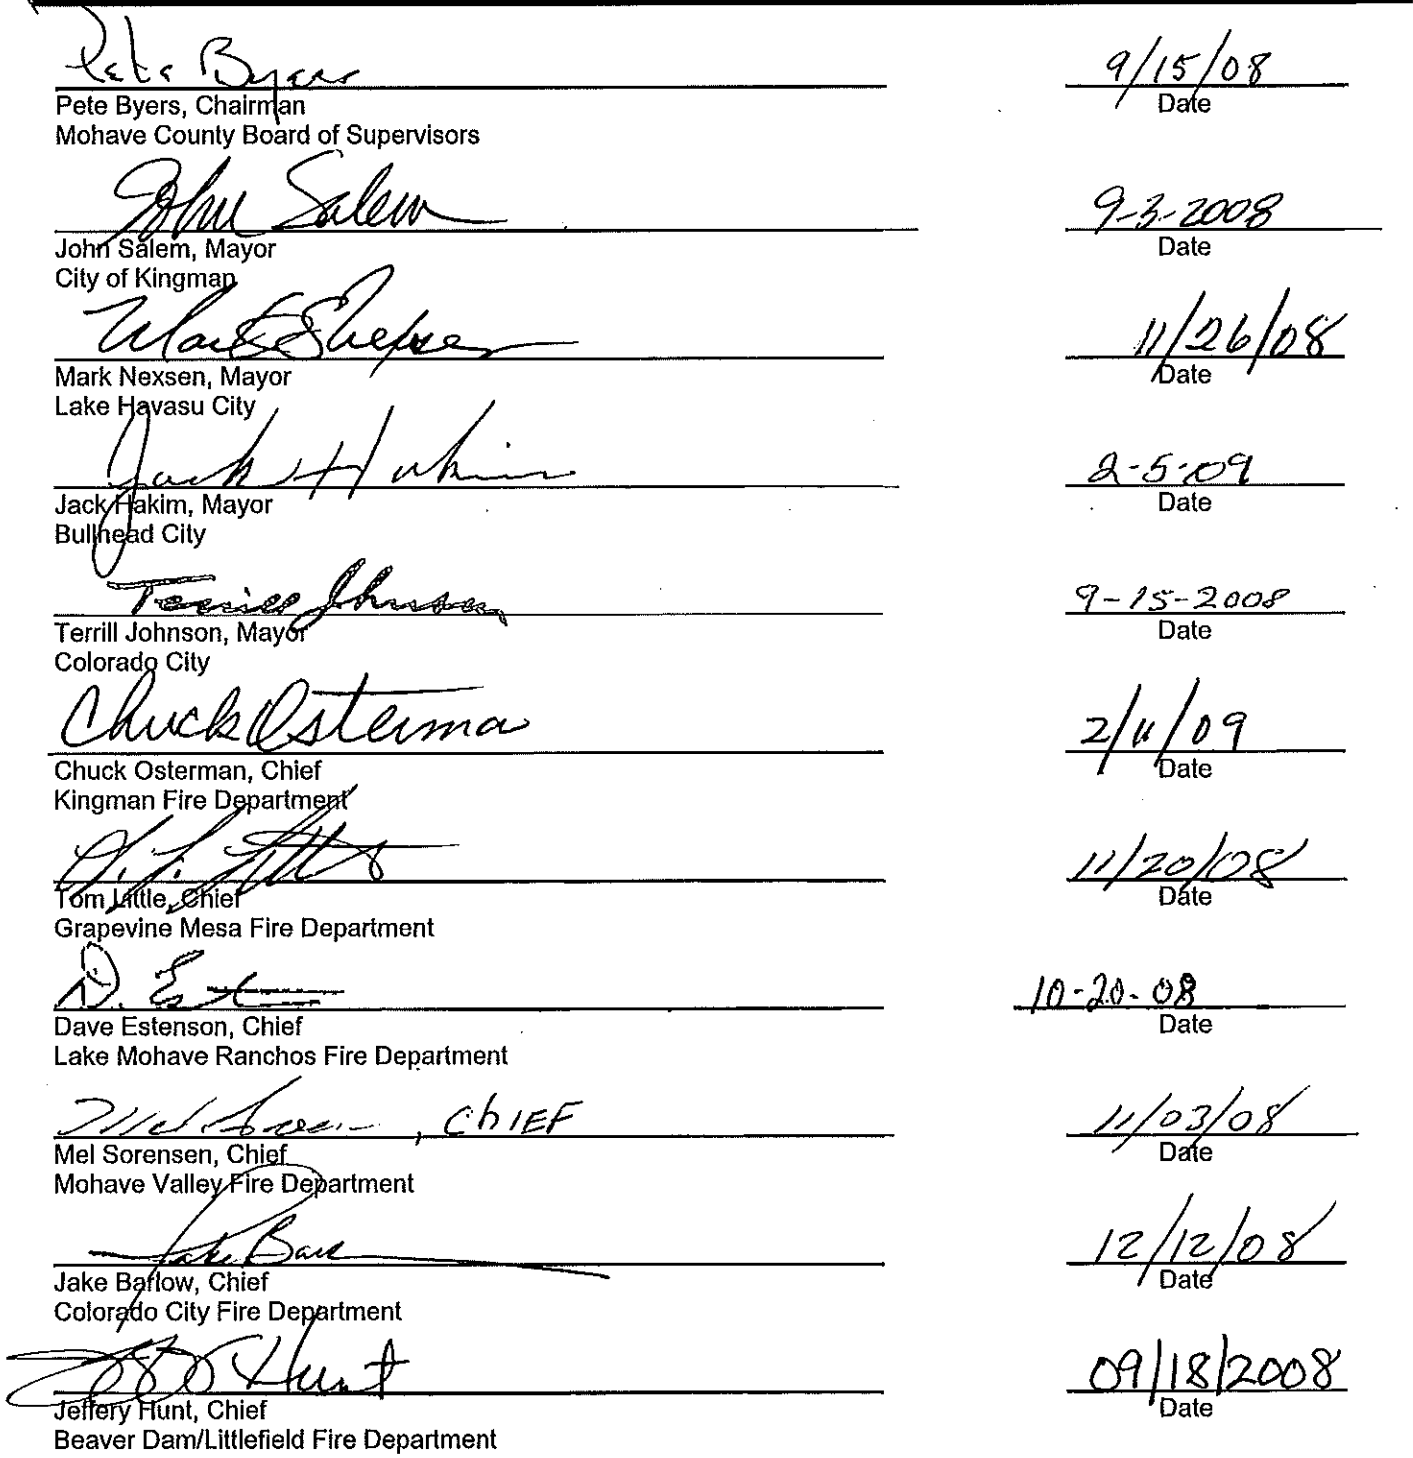 Pete Byers 9/15/08
Pete Byers, Chairman Date
Mohave County Board of Supervisors
John Salem 9-3-2008
John Salem, Mayor Date
City of Kingman
11/26/08
Mark Nexsen, Mayor Date
Lake Havasu City
Jack Hakim 2-5-09
Jack Hakim, Mayor Date
Bullhead City
Terrill Johnson 9-15-2008
Terrill Johnson, Mayor Date
Colorado City
Chuck Osterma 2/11/09
Chuck Osterman, Chief Date
Kingman Fire Department
11/20/08
Tom Little, Chief Date
Grapevine Mesa Fire Department
D. Est 10-20-08
Dave Estenson, Chief Date
Lake Mohave Ranchos Fire Department
Mel Soren, ChIEF 11/03/08
Mel Sorensen, Chief Date
Mohave Valley Fire Department
Jake Barl 12/12/08
Jake Barlow, Chief Date
Colorado City Fire Department
Hunt 09/18/2008
Jeffery Hunt, Chief Date
Beaver Dam/Littlefield Fire Department